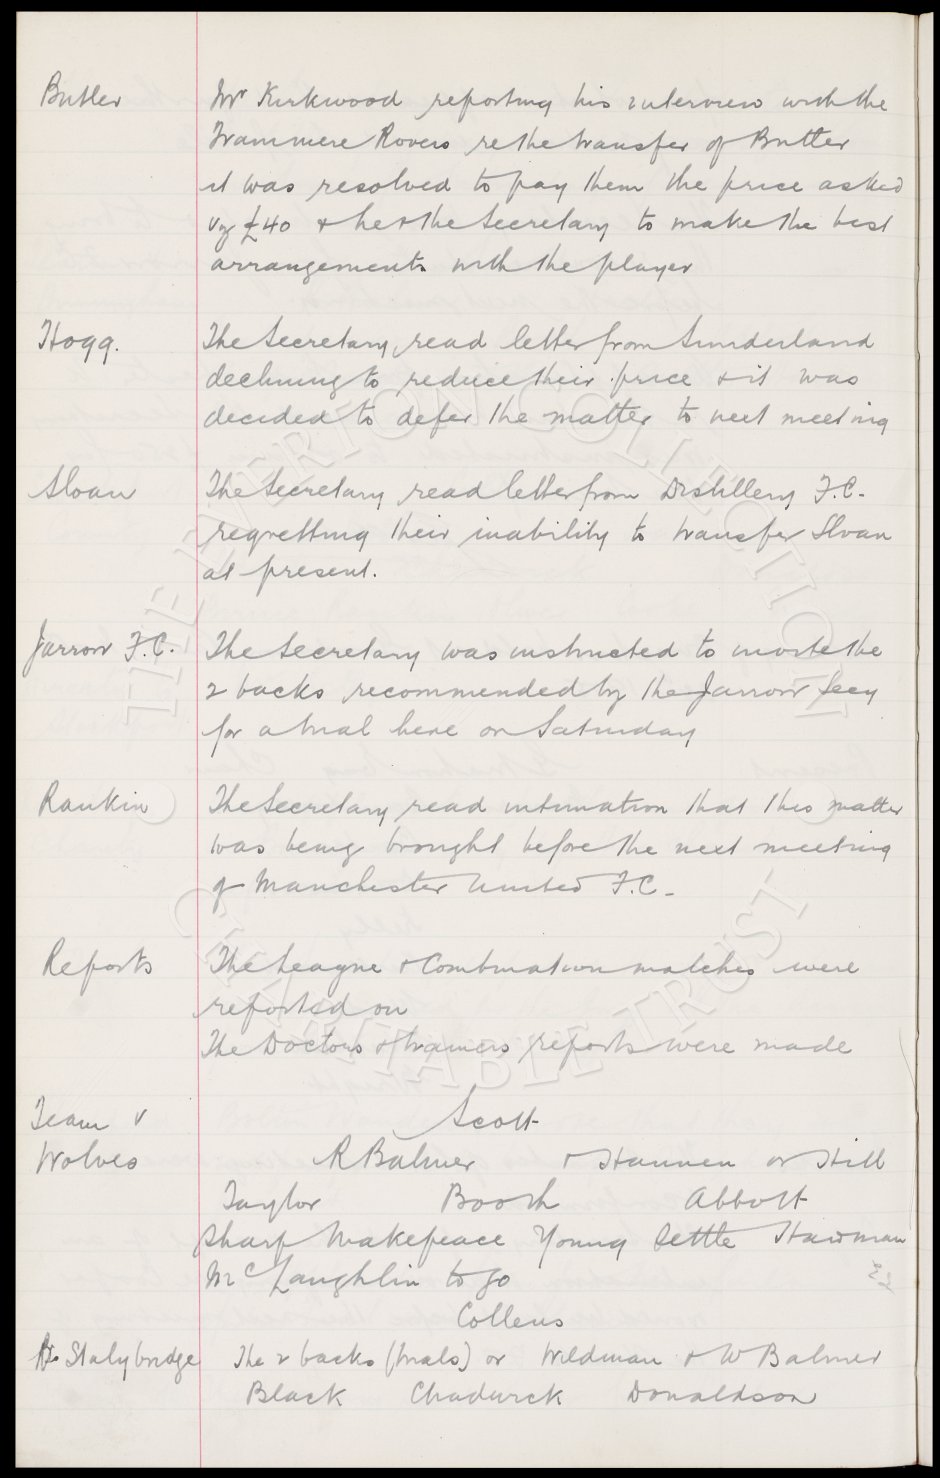 Butler Mr Kirkwood reporting his interview with the
Tranmere Rovers re the transfer of Butler
it was resolved to pay them the price asked
vz £40 & he & the Secretary to make the best
arrangements with the player
Hogg. The Secretary read letter from Sunderland
declining to reduce their price & it was
decided to defer the matter to next meeting
Sloan The Secretary read letter from Distillery F.C.
regretting their inability to transfer Sloan
at present.
Jarrow F.C. The Secretary was instructed to invite the
2 backs recommended by the Jarrow Secy
for a trial here on Saturday
Rankin The Secretary read intimation that this matter
was being brought before the next meeting
of Manchester United F.C.
Reports The League & Combination matches were
reported on
The Doctors & trainers reports were made
Team v Scott
Wolves R Balmer & Hannen or Hill
Taylor Booth Abbott
Sharp Makepeace Young Settle Hardman
McLaughlin to go
Collens
Stalybridge The 2 backs (trials) or Wildman & W Balmer
Black Chadwick Donaldson
THE EVERTON COLLECTION
CHARITABLE TRUST